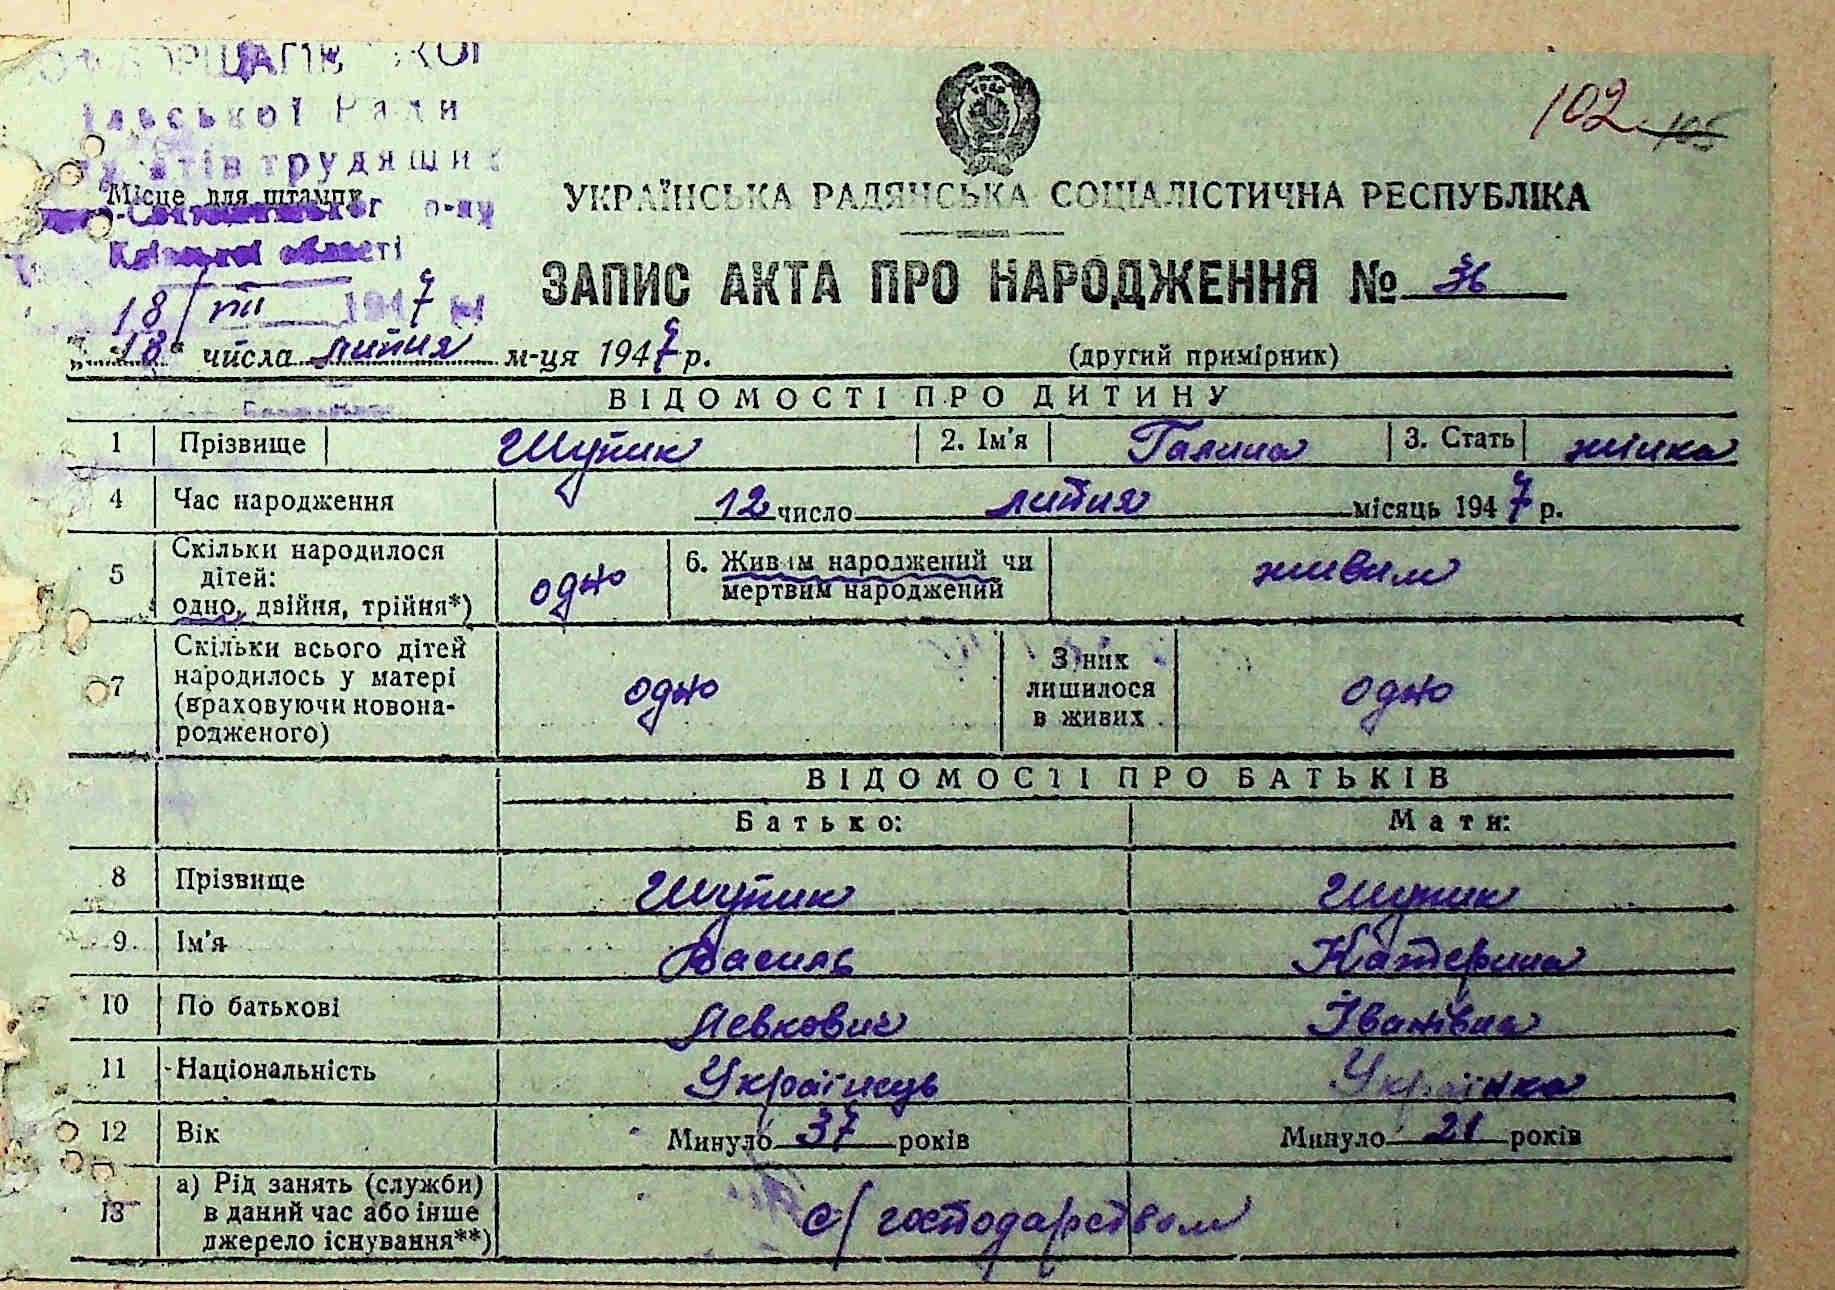 102 105
Ради
трудящих
Місце для штампу
Київської області
18/VII 1947
УКРАЇНСЬКА РАДЯНСЬКА СОЦІАЛІСТИЧНА РЕСПУБЛІКА
ЗАПИС АКТА ПРО НАРОДЖЕННЯ № 36
„18" числа липня м-ця 1947 р. (другий примірник)
ВІДОМОСТІ ПРО ДИТИНУ
1 Прізвище Шупик 2. Ім'я Галина 3. Стать жінка
4 Час народження 12 число липня місяць 1947 р.
5 Скільки народилося
дітей:
одно, двійня, трійня*) одно 6. Живим народжений чи
мертвим народжений живим
7 Скільки всього дітей
народилось у матері
(враховуючи новона-
родженого) одно З них
лишилося
в живих одно
ВІДОМОСТІ ПРО БАТЬКІВ
Батько: Мати:
8 Прізвище Шупик Шупик
9. Ім'я Василь Катерина
10 По батькові Левкович Іванівна
11 Національність Українець Українка
12 Вік Минуло 37 років Минуло 21 років
13 а) Рід занять (служби)
в даний час або інше
джерело існування**) с/господарством